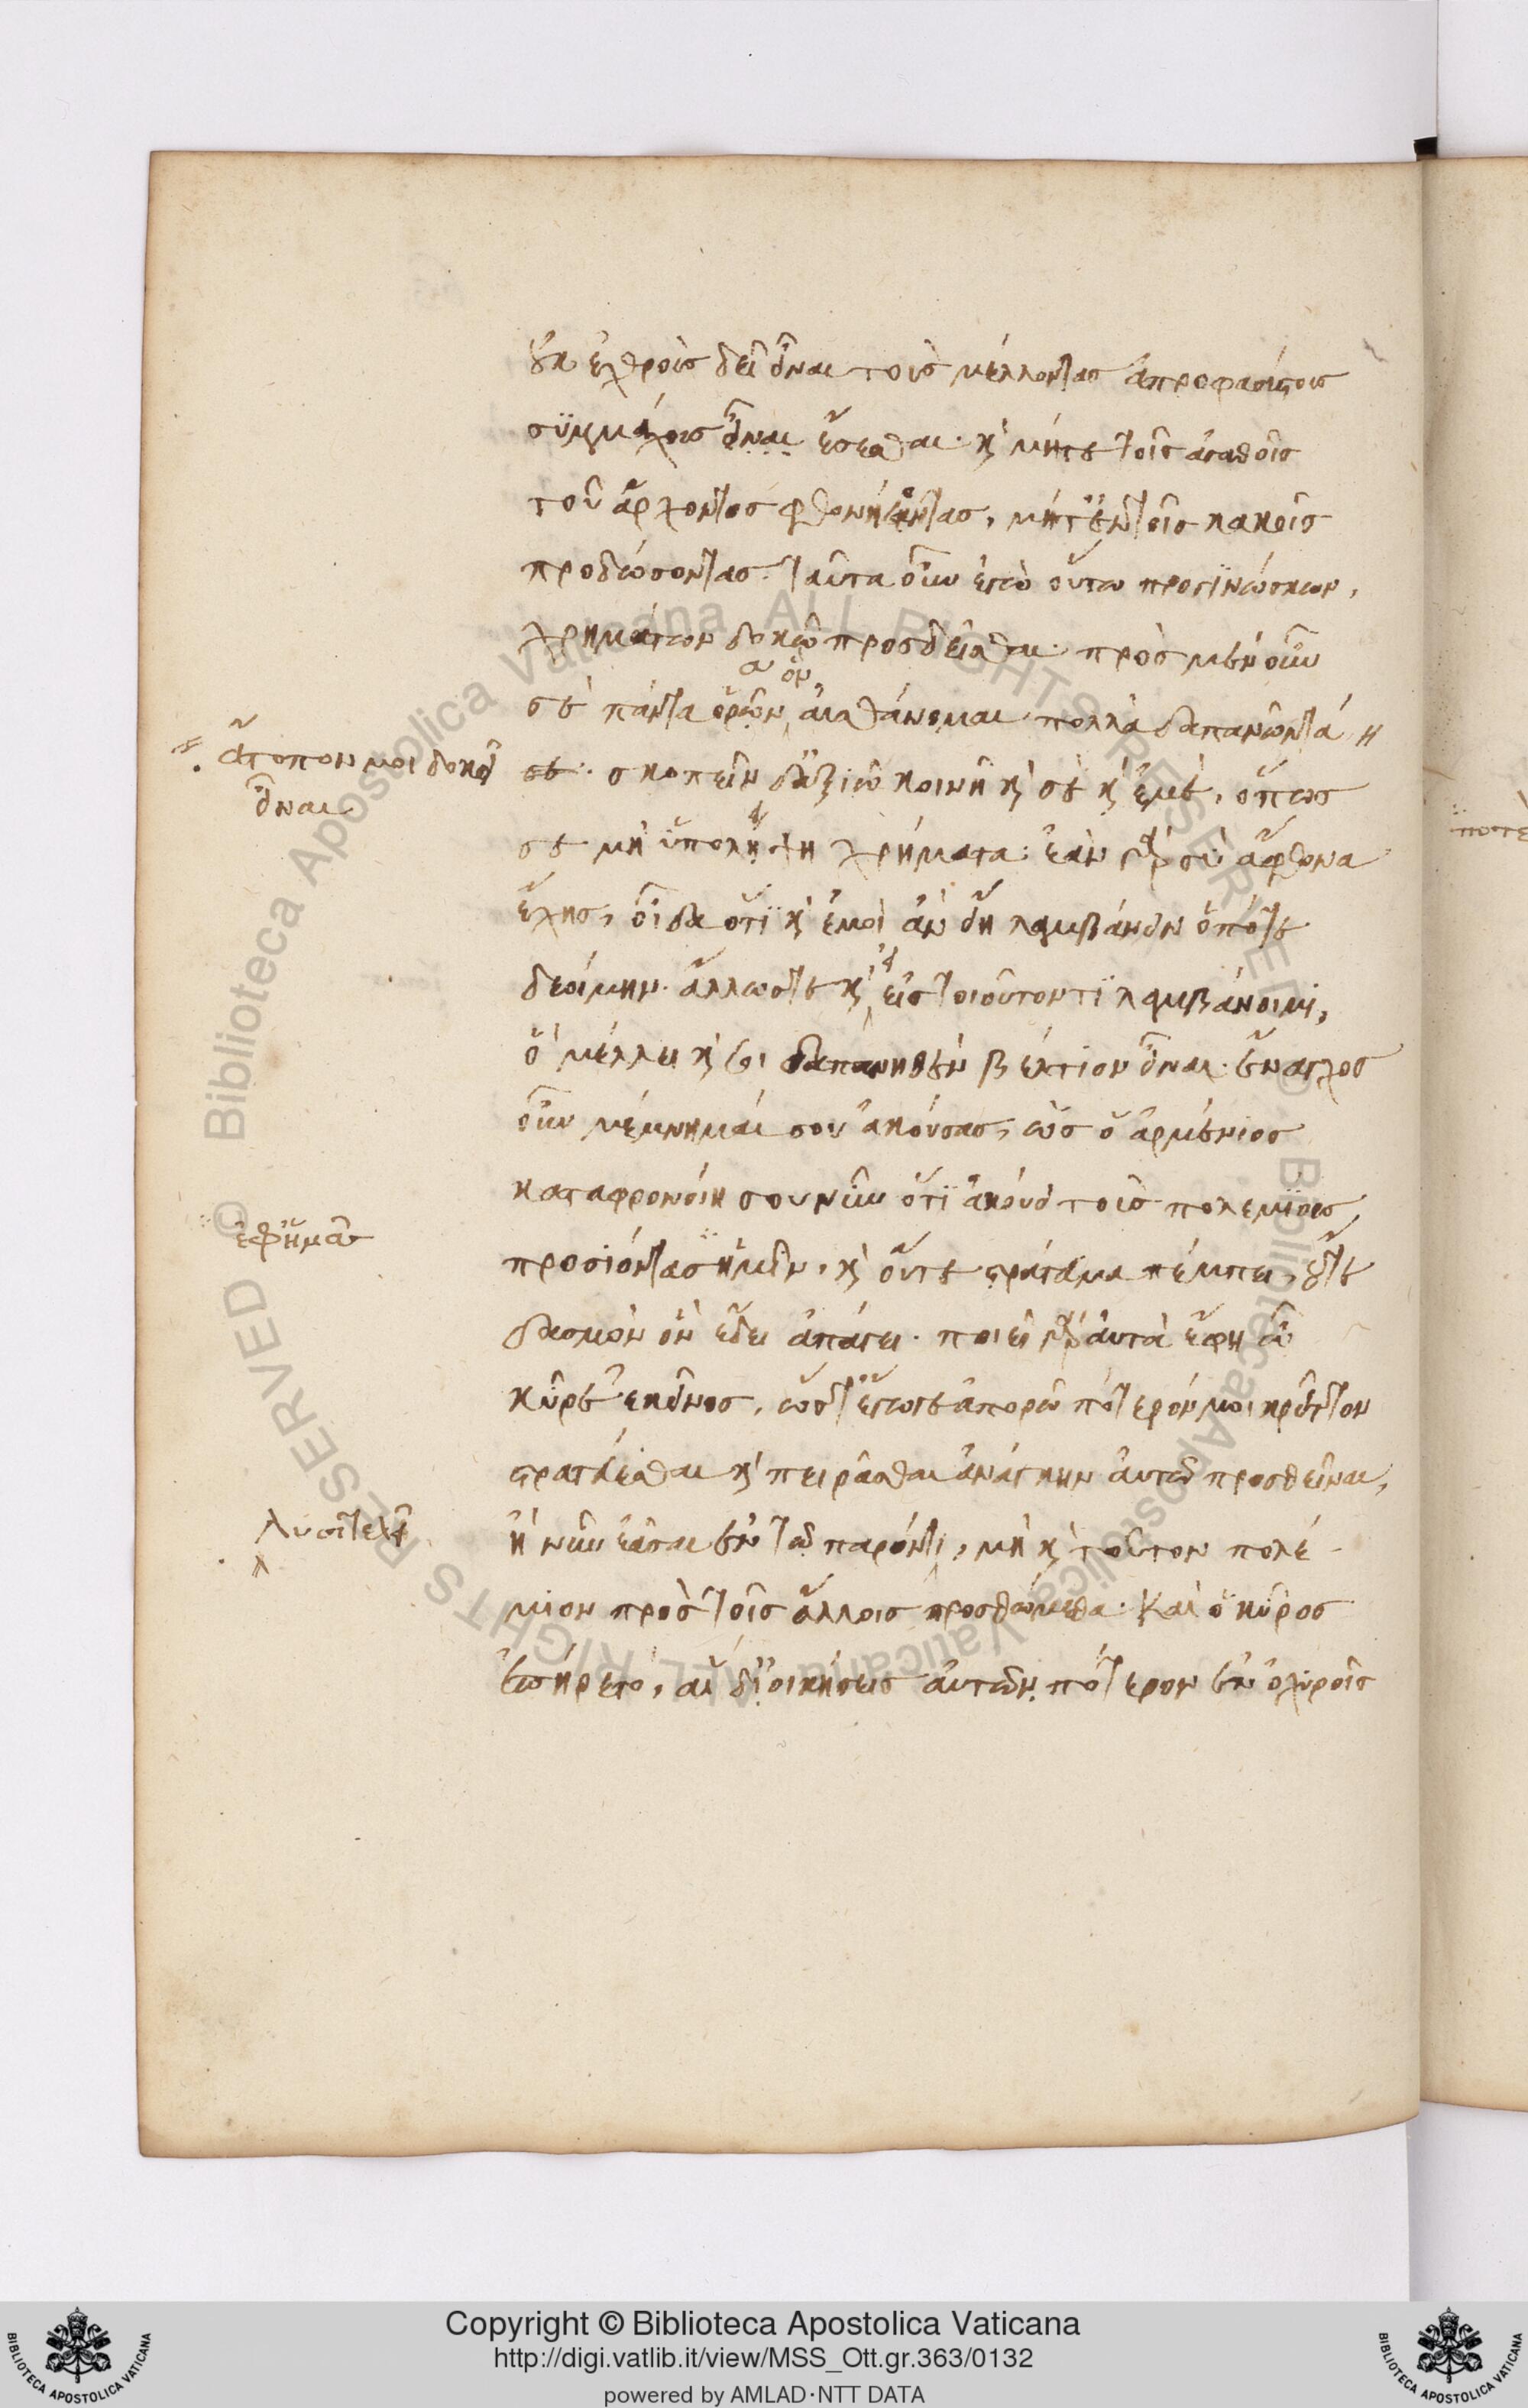 οὐκ ἐχθροὺς δεῖ εἶναι τοὺς μέλλοντας ἀπροφασίστους
συμμάχους εἶναι ἔσεσθαι· καὶ μήτε τοῖς ἀγαθοῖς
τοῦ ἄρχοντος φθονήσοντας, μήτ' ἐν τοῖς κακοῖς
προδώσοντας. ταῦτα οὖν ἐγὼ οὕτω προγινώσκων,
χρημάτων δοκῶ προσδεῖσθαι· πρὸς μὲν οὖν
σὲ πάντα ὁρᾶν, αἰσθάνομαι πολλὰ δαπανῶντά
ἄτοπον μοι δοκεῖ
εἶναι
σε· σκοπεῖν δ' ἀξιῶ κοινῇ καὶ σὲ καὶ ἐμὲ, ὅπως
σε μὴ ὑπολείψῃ χρήματα· ἐὰν γὰρ σὺ ἄφθονα
ἔχῃς, οἶδα ὅτι καὶ ἐμοὶ ἂν εἴη λαμβάνειν ὁπότε
δεοίμην· ἄλλως τε καὶ εἰ εἰς τοιοῦτόν τι λαμβάνοιμι,
ὃ μέλλει καὶ σοι δαπανηθὲν βέλτιον εἶναι· ἔναγχος
οὖν μέμνημαί σου ἀκούσας, ὡς ὁ ἀρμένιος
καταφρονοίη σου νῦν ὅτι ἀκούει τοὺς πολεμίους
ἐφ' ἡμᾶς
προσιόντας ἡμῖν, καὶ οὔτε στράτευμα πέμπει, οὔτε
δασμὸν ὃν ἔδει ἀπάγει· ποιεῖ γὰρ αὐτὰ ἔφη ὦ
κῦρε ἐκεῖνος, ὥστ' ἔγωγε ἀπορῶ πότερόν μοι κρεῖττον
στρατεύεσθαι καὶ πειρᾶσθαι ἀνάγκην αὐτῷ προσθεῖναι,
λυσιτελεῖ
ἢ νῦν ἐᾶσαι ἐν τῷ παρόντι, μὴ καὶ τοῦτον πολέ-
μιον πρὸς τοῖς ἄλλοις προσθώμεθα· Καὶ ὁ κῦρος
ἐπήρετο, αἱ δὲ οἰκήσεις αὐτῶν πότερον ἐν ὀχυροῖς
© Biblioteca Apostolica Vaticana ALL RIGHTS RESERVED
© Biblioteca Apostolica Vaticana ALL RIGHTS RESERVED
Copyright © Biblioteca Apostolica Vaticana
http://digi.vatlib.it/view/MSS_Ott.gr.363/0132
powered by AMLAD·NTT DATA
BIBLIOTECA APOSTOLICA VATICANA
BIBLIOTECA APOSTOLICA VATICANA